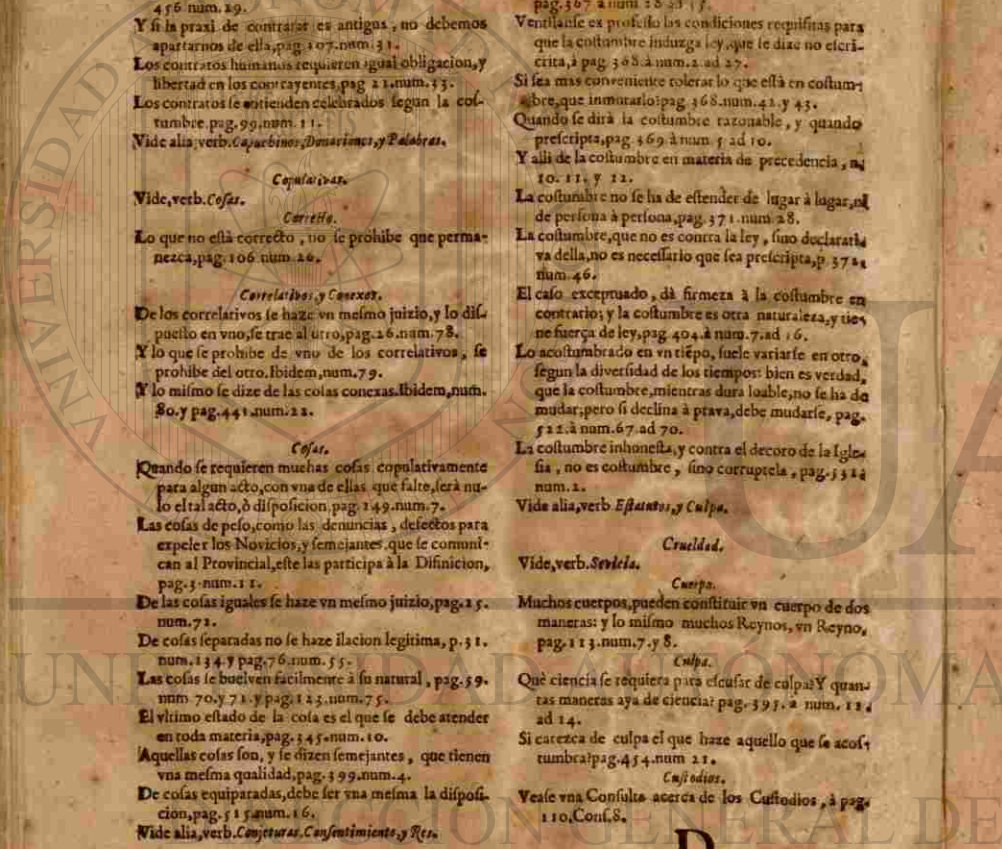 456 num. 29.
Y si la praxi de contratar es antigua, no debemos
apartarnos de ella, pag. 107. num. 31.
Los contratos humanos requieren igual obligacion, y
libertad en los contrayentes, pag 21. num. 33.
Los contratos se entienden celebrados segun la cos-
tumbre. pag. 99. num. 11.
Vide alia, verb. Capuchinos, Donaciones, y Palabras.
Copulativas.
Vide, verb. Cosas.
Correcto.
Lo que no està correcto, no se prohibe que perma-
nezca, pag. 106 num. 26.
Correlativos, y Conexos.
De los correlativos se haze vn mesmo juizio, y lo dis-
puesto en vno, se trae al otro, pag. 26. num. 78.
Y lo que se prohibe de vno de los correlativos, se
prohibe del otro. Ibidem, num. 79.
Y lo mismo se dize de las cosas conexas. Ibidem, num.
80. y pag. 441. num. 22.
Cosas.
Quando se requieren muchas cosas copulativamente
para algun acto, con vna de ellas que falte, serà nu-
lo el tal acto, ò disposicion pag. 149. num. 7.
Las cosas de peso, como las denuncias, defectos para
expeler los Novicios, y semejantes, que se comuni-
can al Provincial, este las participa à la Difinicion,
pag. 3. num. 11.
De las cosas iguales se haze vn mesmo juizio, pag. 25.
num. 72.
De cosas separadas no se haze ilacion legitima, p. 31.
num. 134. y pag. 76. num. 55.
Las cosas se buelven facilmente à su natural, pag. 59.
num 70. y 71. y pag. 123. num. 75.
El vltimo estado de la cosa es el que se debe atender
en toda materia, pag. 345. num. 10.
Aquellas cosas son, y se dizen semejantes, que tienen
vna mesma qualidad, pag. 399. num. 4.
De cosas equiparadas, debe ser vna mesma la disposi-
cion, pag. 515. num. 16.
Vide alia, verb. Conjeturas, Consentimiento, y Res.
pag. 367 à num 28
Ventilanse ex professo las condiciones requisitas para
que la costumbre induzga ley, que se dize no escri-
crita, à pag. 368. à num. 2. ad 27.
Si sea mas conveniente tolerar lo que està en costum-
bre, que inmutarlo? pag. 368. num. 42. y 43.
Quando se dirà la costumbre razonable, y quando
prescripta, pag. 369 à num 5 ad 10.
Y alli de la costumbre en materia de precedencia, n.
10. 11. y 12.
La costumbre no se ha de estender de lugar à lugar, ni
de persona à persona, pag. 371. num. 28.
La costumbre, que no es contra la ley, sino declarati-
va della, no es necessario que sea prescripta, p. 372.
num. 46.
El caso exceptuado, dà firmeza à la costumbre en
contrario; y la costumbre es otra naturaleza, y tie-
ne fuerça de ley, pag. 404. à num. 7. ad 16.
Lo acostumbrado en vn tiẽpo, suele variarse en otro,
segun la diversidad de los tiempos: bien es verdad,
que la costumbre, mientras dura loable, no se ha de
mudar; pero si declina à prava, debe mudarse, pag.
522. à num. 67. ad 70.
La costumbre inhonesta, y contra el decoro de la Igle-
sia, no es costumbre, sino corruptela, pag. 532.
num. 2.
Vide alia, verb Estatutos, y Culpa.
Crueldad.
Vide, verb. Sevicia.
Cuerpo.
Muchos cuerpos, pueden constituir vn cuerpo de dos
maneras: y lo mismo muchos Reynos, vn Reyno,
pag. 113. num. 7. y 8.
Culpa.
Què ciencia se requiera para escusar de culpa? Y quan-
tas maneras aya de ciencia? pag. 395. à num. 12.
ad 14.
Si carezca de culpa el que haze aquello que se acos-
tumbra? pag. 454. num 21.
Custodios.
Vease vna Consulta acerca de los Custodios, à pag.
110. Cons. 8.
D
UNIVERSIDAD AUTÓNOMA
DIRECCIÓN GENERAL DE